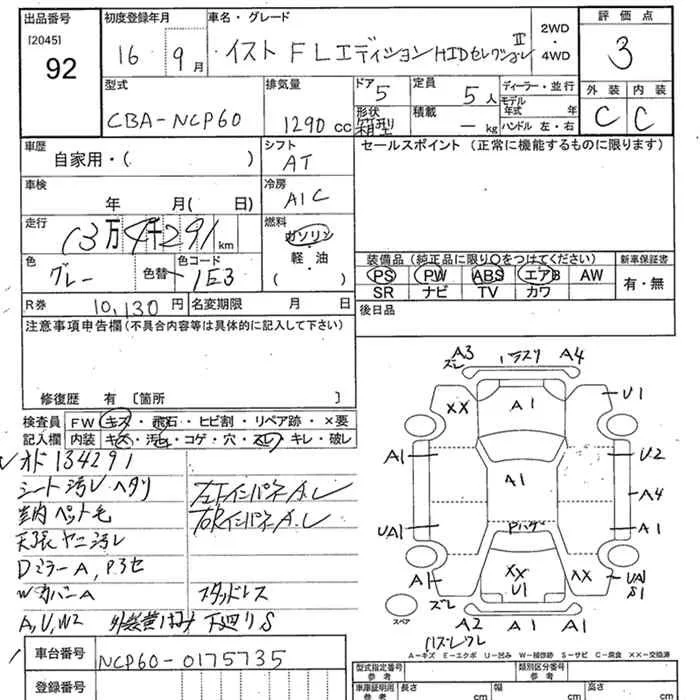 出品番号 初度登録年月 車名・グレード 2WD・4WD 評価点
[2045]
92 16 9月 イスト FLエディション HIDセレクション Ⅱ 3
型式 排気量 ドア 5 定員 5人 ディーラー・並行 外装 内装
CBA-NCP60 1290cc 形状 箱型 積載 ー kg モデル年式 年 C C
ハンドル 左・右
車歴 シフト セールスポイント (正常に機能するものに限ります)
自家用・( ) AT
車検 冷房
年 月( 日) A/C
走行 燃料
13万4千291km ガソリン
軽・油
( )
色 色替 色コード 装備品 (純正品に限り○をつけてください) 新車保証書
グレー 1E3 PS PW ABS エアB AW 有・無
SR ナビ TV カワ
R券 10,130円 名変期限 月 日 後日品
注意事項申告欄 (不具合内容等は具体的に記入して下さい)
修復歴 有 [箇所 ]
検査員 FW キズ・飛石・ヒビ割・リペア跡・×要
記入欄 内装 キズ・汚れ・コゲ・穴・スレ・キレ・破レ
134291
シート汚レ ヘタリ
室内 ペット毛
天張ヤニ汚レ
DミラーA,
WカバーA スタッドレス
A,U,W2 下廻りS
車台番号 NCP60-0175735
登録番号
A3 A4
XX A1 U1
A1 U2
A1 A4
UA1 A1
A1 XX U1 XX UA1 S1
スペア A2 A1 A1
A=キズ E=エクボ U=凹み W=補修跡 S=サビ C=腐食 XX=交換済
型式指定番号 参考 類別区分番号 参考
車庫証明用 参考 長さ cm 幅 cm 高さ cm